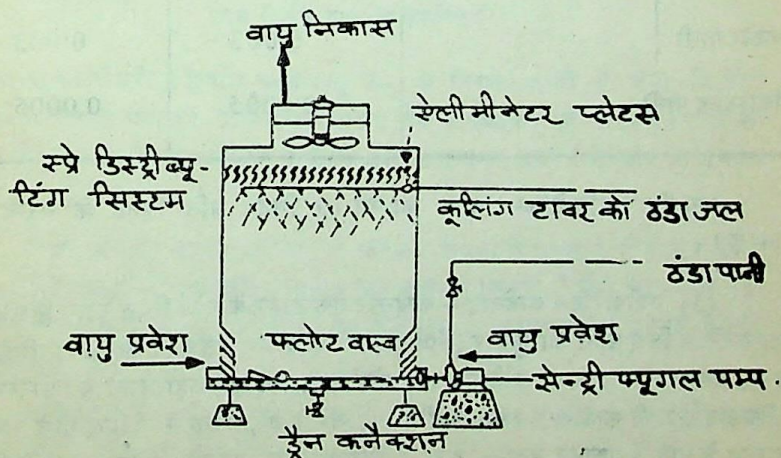 0.0006
वायु निकास
ऐलीमीनेटर प्लेटस
स्प्रे डिस्ट्रीब्यू-
टिंग सिस्टम
कूलिंग टावर को ठंडा जल
ठंडा पानी
वायु प्रवेश
फ्लोट वाल्व
वायु प्रवेश
सेन्ट्रीफ्यूगल पम्प.
ड्रैन कनैक्शन